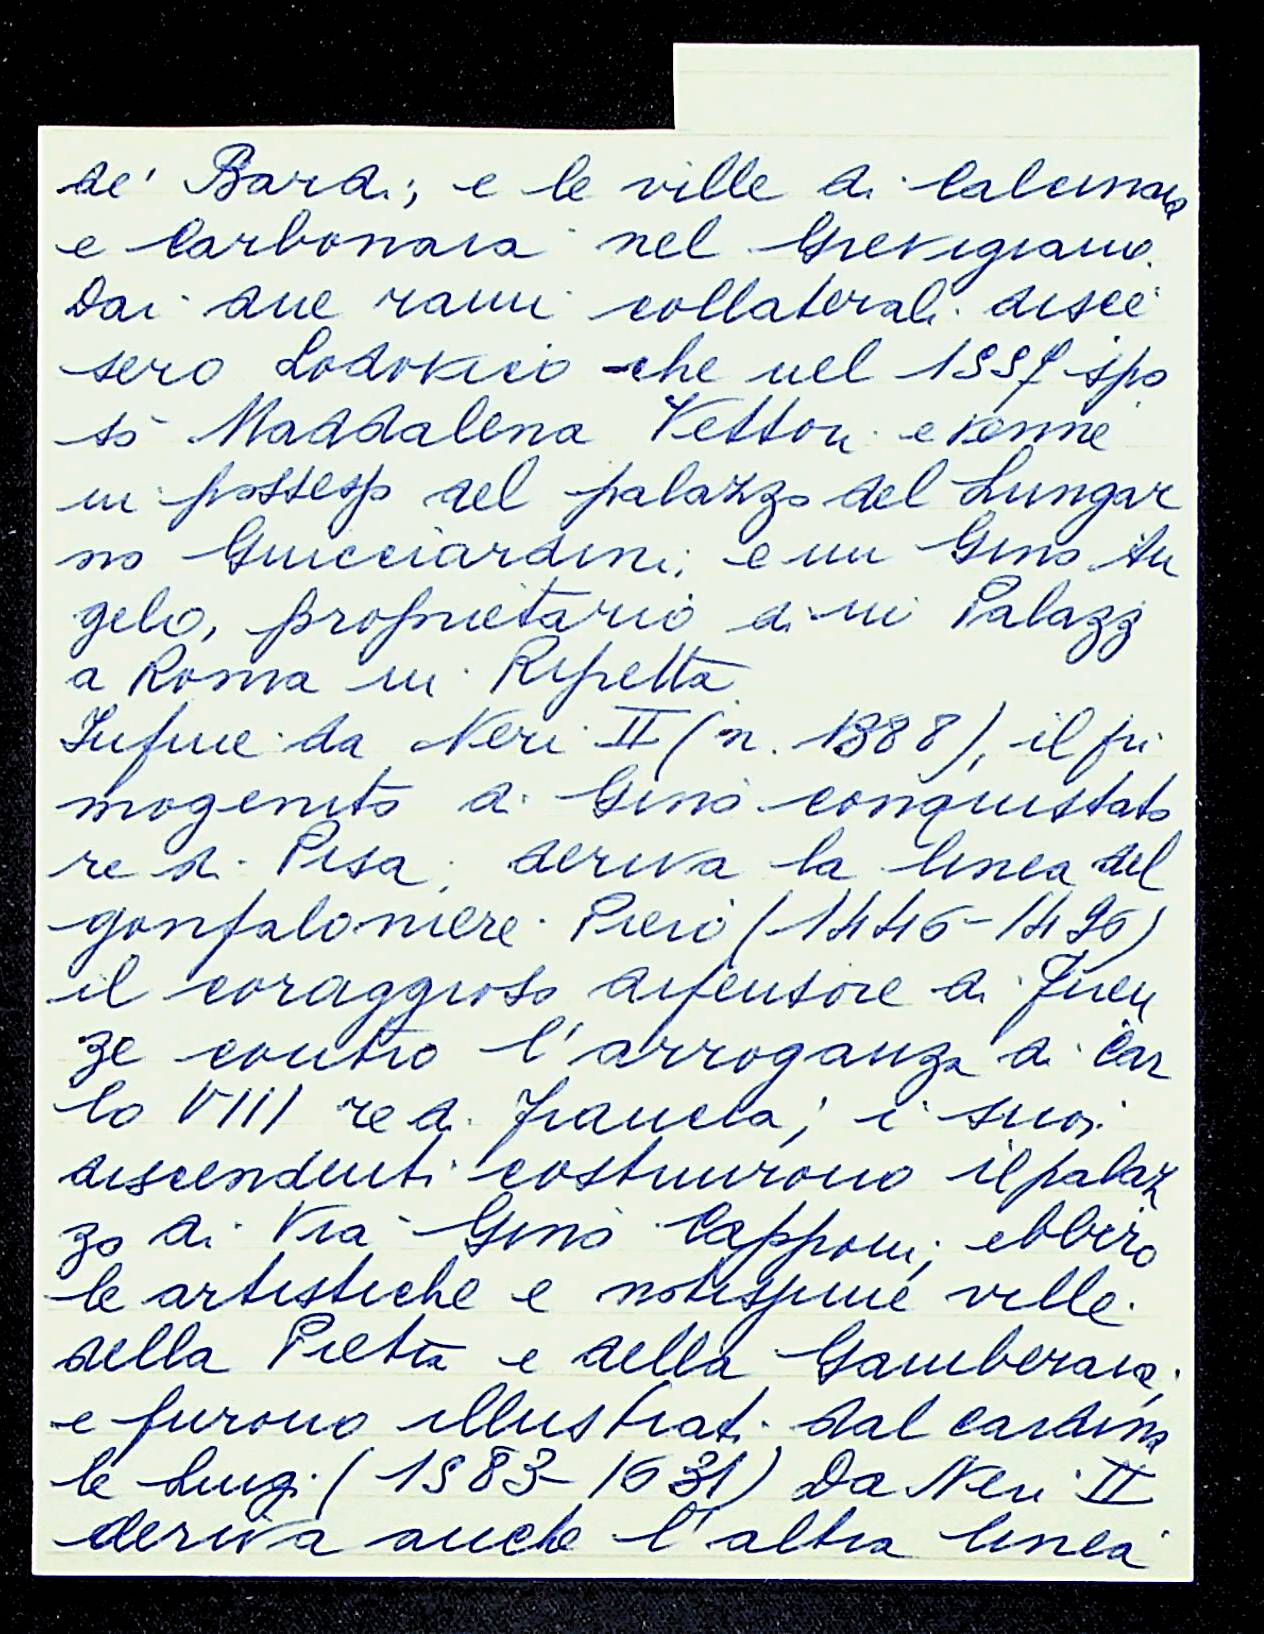 de' Bardi; e le ville di Calcinaia
e Carbonaia nel Grevigiano.
Dai due rami collaterali disce
sero Lodovico che nel 1559 spo
sò Maddalena Vettori e venne
in possesso del palazzo del Lungar
no Guicciardini; e un Gino An
gelo, proprietario di un Palazz
a Roma in Ripetta
Infine da Neri II (n. 1388), il pri
mogenito di Gino conquistato
re di Pisa, deriva la linea del
gonfaloniere Piero (1446-1496)
il coraggioso difensore di Firen
ze contro l'arroganza di Car
lo VIII re di Francia; i suoi
discendenti costruirono il palaz
zo di Via Gino Capponi; ebbero
le artistiche e notissime ville
della Pietra e della Gamberaia,
e furono illustrati dal cardina
le Luigi (1583-1631) Da Neri II
deriva anche l'altra linea